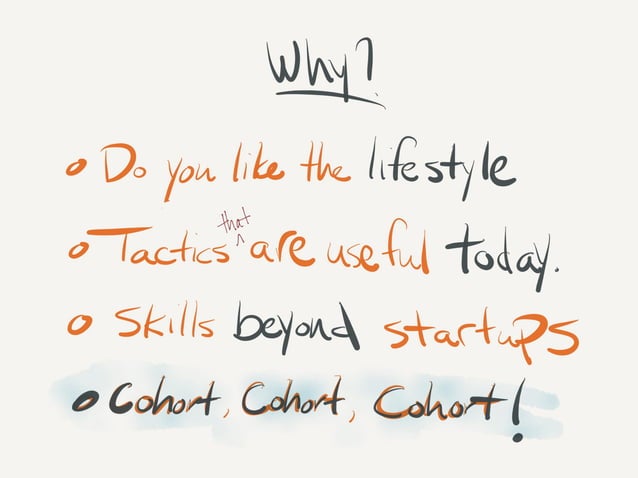 Why?
• Do you like the lifestyle
• Tactics that are useful today.
• Skills beyond startups
• Cohort, Cohort, Cohort!